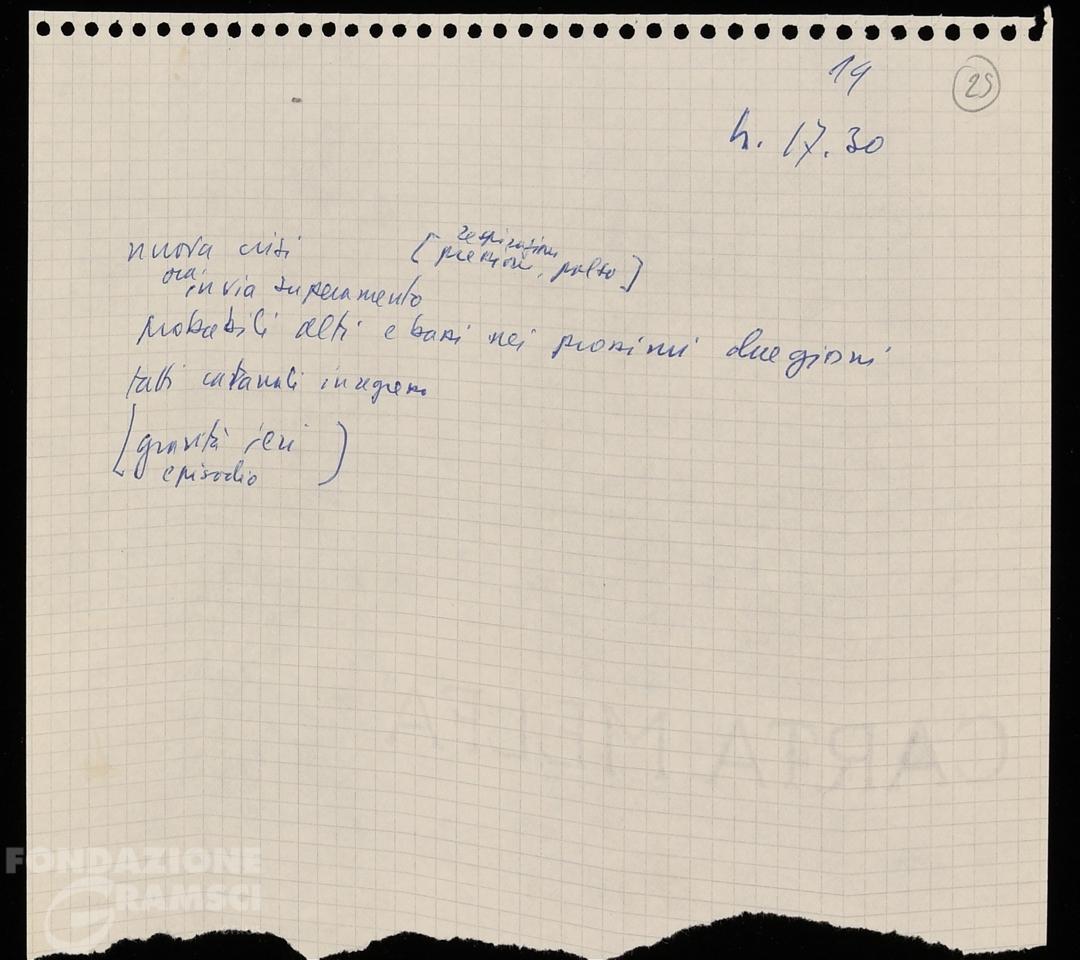 19
25
h. 17.30
nuova crisi [respirazione
pressione, polso]
ora in via superamento
probabili alti e bassi nei prossimi due giorni
fatti catarrali in regresso
[gravità ieri
episodio]
CARTA MELFA
FONDAZIONE
GRAMSCI